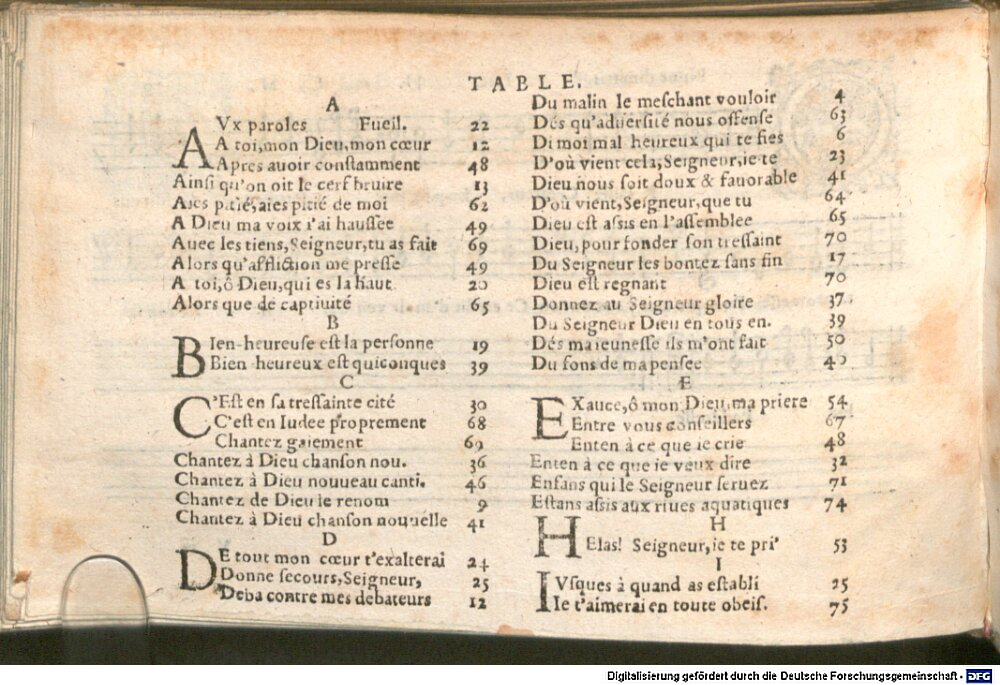 TABLE.
A
AVx paroles Fueil. 22
A toi, mon Dieu, mon cœur 12
Apres auoir constamment 48
Ainsi qu'on oit le cerf bruire 13
Aies pitié, aies pitié de moi 62
A Dieu ma voix i'ai haussee 49
Auec les tiens, Seigneur, tu as fait 69
Alors qu'affliction me presse 49
A toi, ô Dieu, qui es la haut 20
Alors que de captiuité 65
B
BIen-heureuse est la personne 19
Bien heureux est quiconques 39
C
C'Est en sa tressainte cité 30
C'est en Iudee proprement 68
Chantez gaiement 69
Chantez à Dieu chanson nou. 36
Chantez à Dieu nouueau canti. 46
Chantez de Dieu le renom 9
Chantez à Dieu chanson nouuelle 41
D
DE tout mon cœur t'exalterai 24
Donne secours, Seigneur, 25
Deba contre mes debateurs 12
Du malin le meschant vouloir 4
Dés qu'aduersité nous offense 63
Di moi mal heureux qui te fies 6
D'où vient cela, Seigneur, ie te 23
Dieu nous soit doux & fauorable 41
D'où vient, Seigneur, que tu 64
Dieu est assis en l'assemblee 65
Dieu, pour fonder son tressaint 70
Du Seigneur les bontez sans fin 17
Dieu est regnant 70
Donnez au Seigneur gloire 37
Du Seigneur Dieu en tous en. 39
Dés ma ieunesse ils m'ont fait 50
Du fons de ma pensee 40
Æ
EXauce, ô mon Dieu, ma priere 54
Entre vous conseillers 67
Enten à ce que ie crie 48
Enten à ce que ie veux dire 32
Enfans qui le Seigneur seruez 71
Estans assis aux riues aquatiques 74
H
HElas! Seigneur, ie te pri' 53
I
IVsques à quand as establi 25
Ie t'aimerai en toute obeis. 75
Digitalisierung gefördert durch die Deutsche Forschungsgemeinschaft - DFG